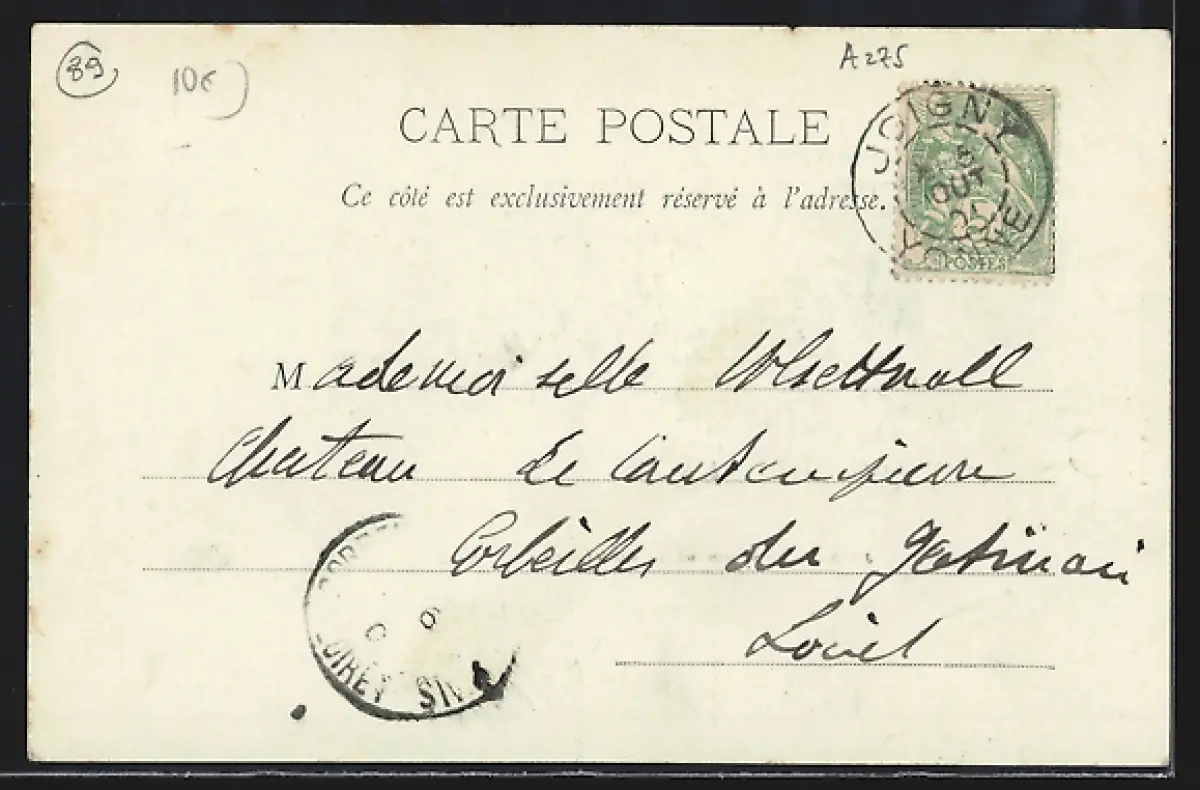 89
10€
A275
CARTE POSTALE
Ce côté est exclusivement réservé à l'adresse.
JOIGNY
5
AOUT
05
YONNE
POSTES
Mademoiselle
Chateau de
Corbeilles du Gatinais
Loiret
6
LOIRET